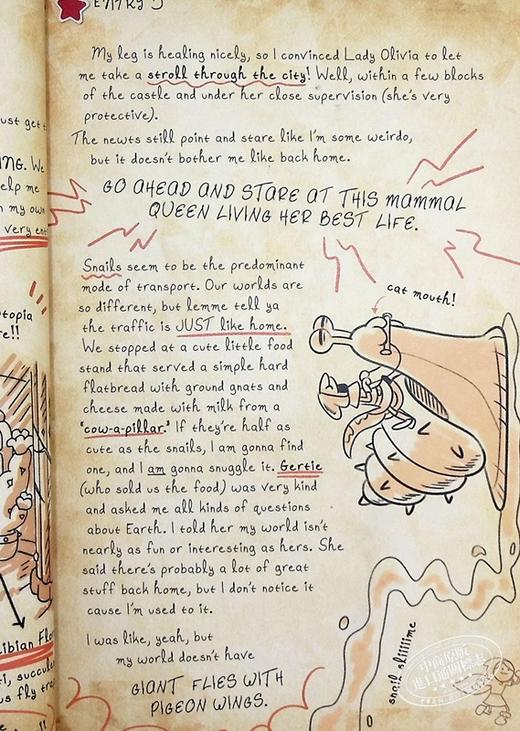 ENTRY 5
My leg is healing nicely, so I convinced Lady Olivia to let
me take a stroll through the city! Well, within a few blocks
of the castle and under her close supervision (she's very
protective).
The newts still point and stare like I'm some weirdo,
but it doesn't bother me like back home.
GO AHEAD AND STARE AT THIS MAMMAL
QUEEN LIVING HER BEST LIFE.
Snails seem to be the predominant
mode of transport. Our worlds are
so different, but lemme tell ya
the traffic is JUST like home.
We stopped at a cute little food
stand that served a simple hard
flatbread with ground gnats and
cheese made with milk from a
"cow-a-pillar." If they're half as
cute as the snails, I am gonna find
one, and I am gonna snuggle it. Gertie
(who sold us the food) was very kind
and asked me all kinds of questions
about Earth. I told her my world isn't
nearly as fun or interesting as hers. She
said there's probably a lot of great
stuff back home, but I don't notice it
cause I'm used to it.
I was like, yeah, but
my world doesn't have
GIANT FLIES WITH
PIGEON WINGS.
cat mouth!
snail sliiiiime
ust get
NG. We
elp me
n my own
very en
topia
re!!
ibian Flo
i, succule
us fly tra